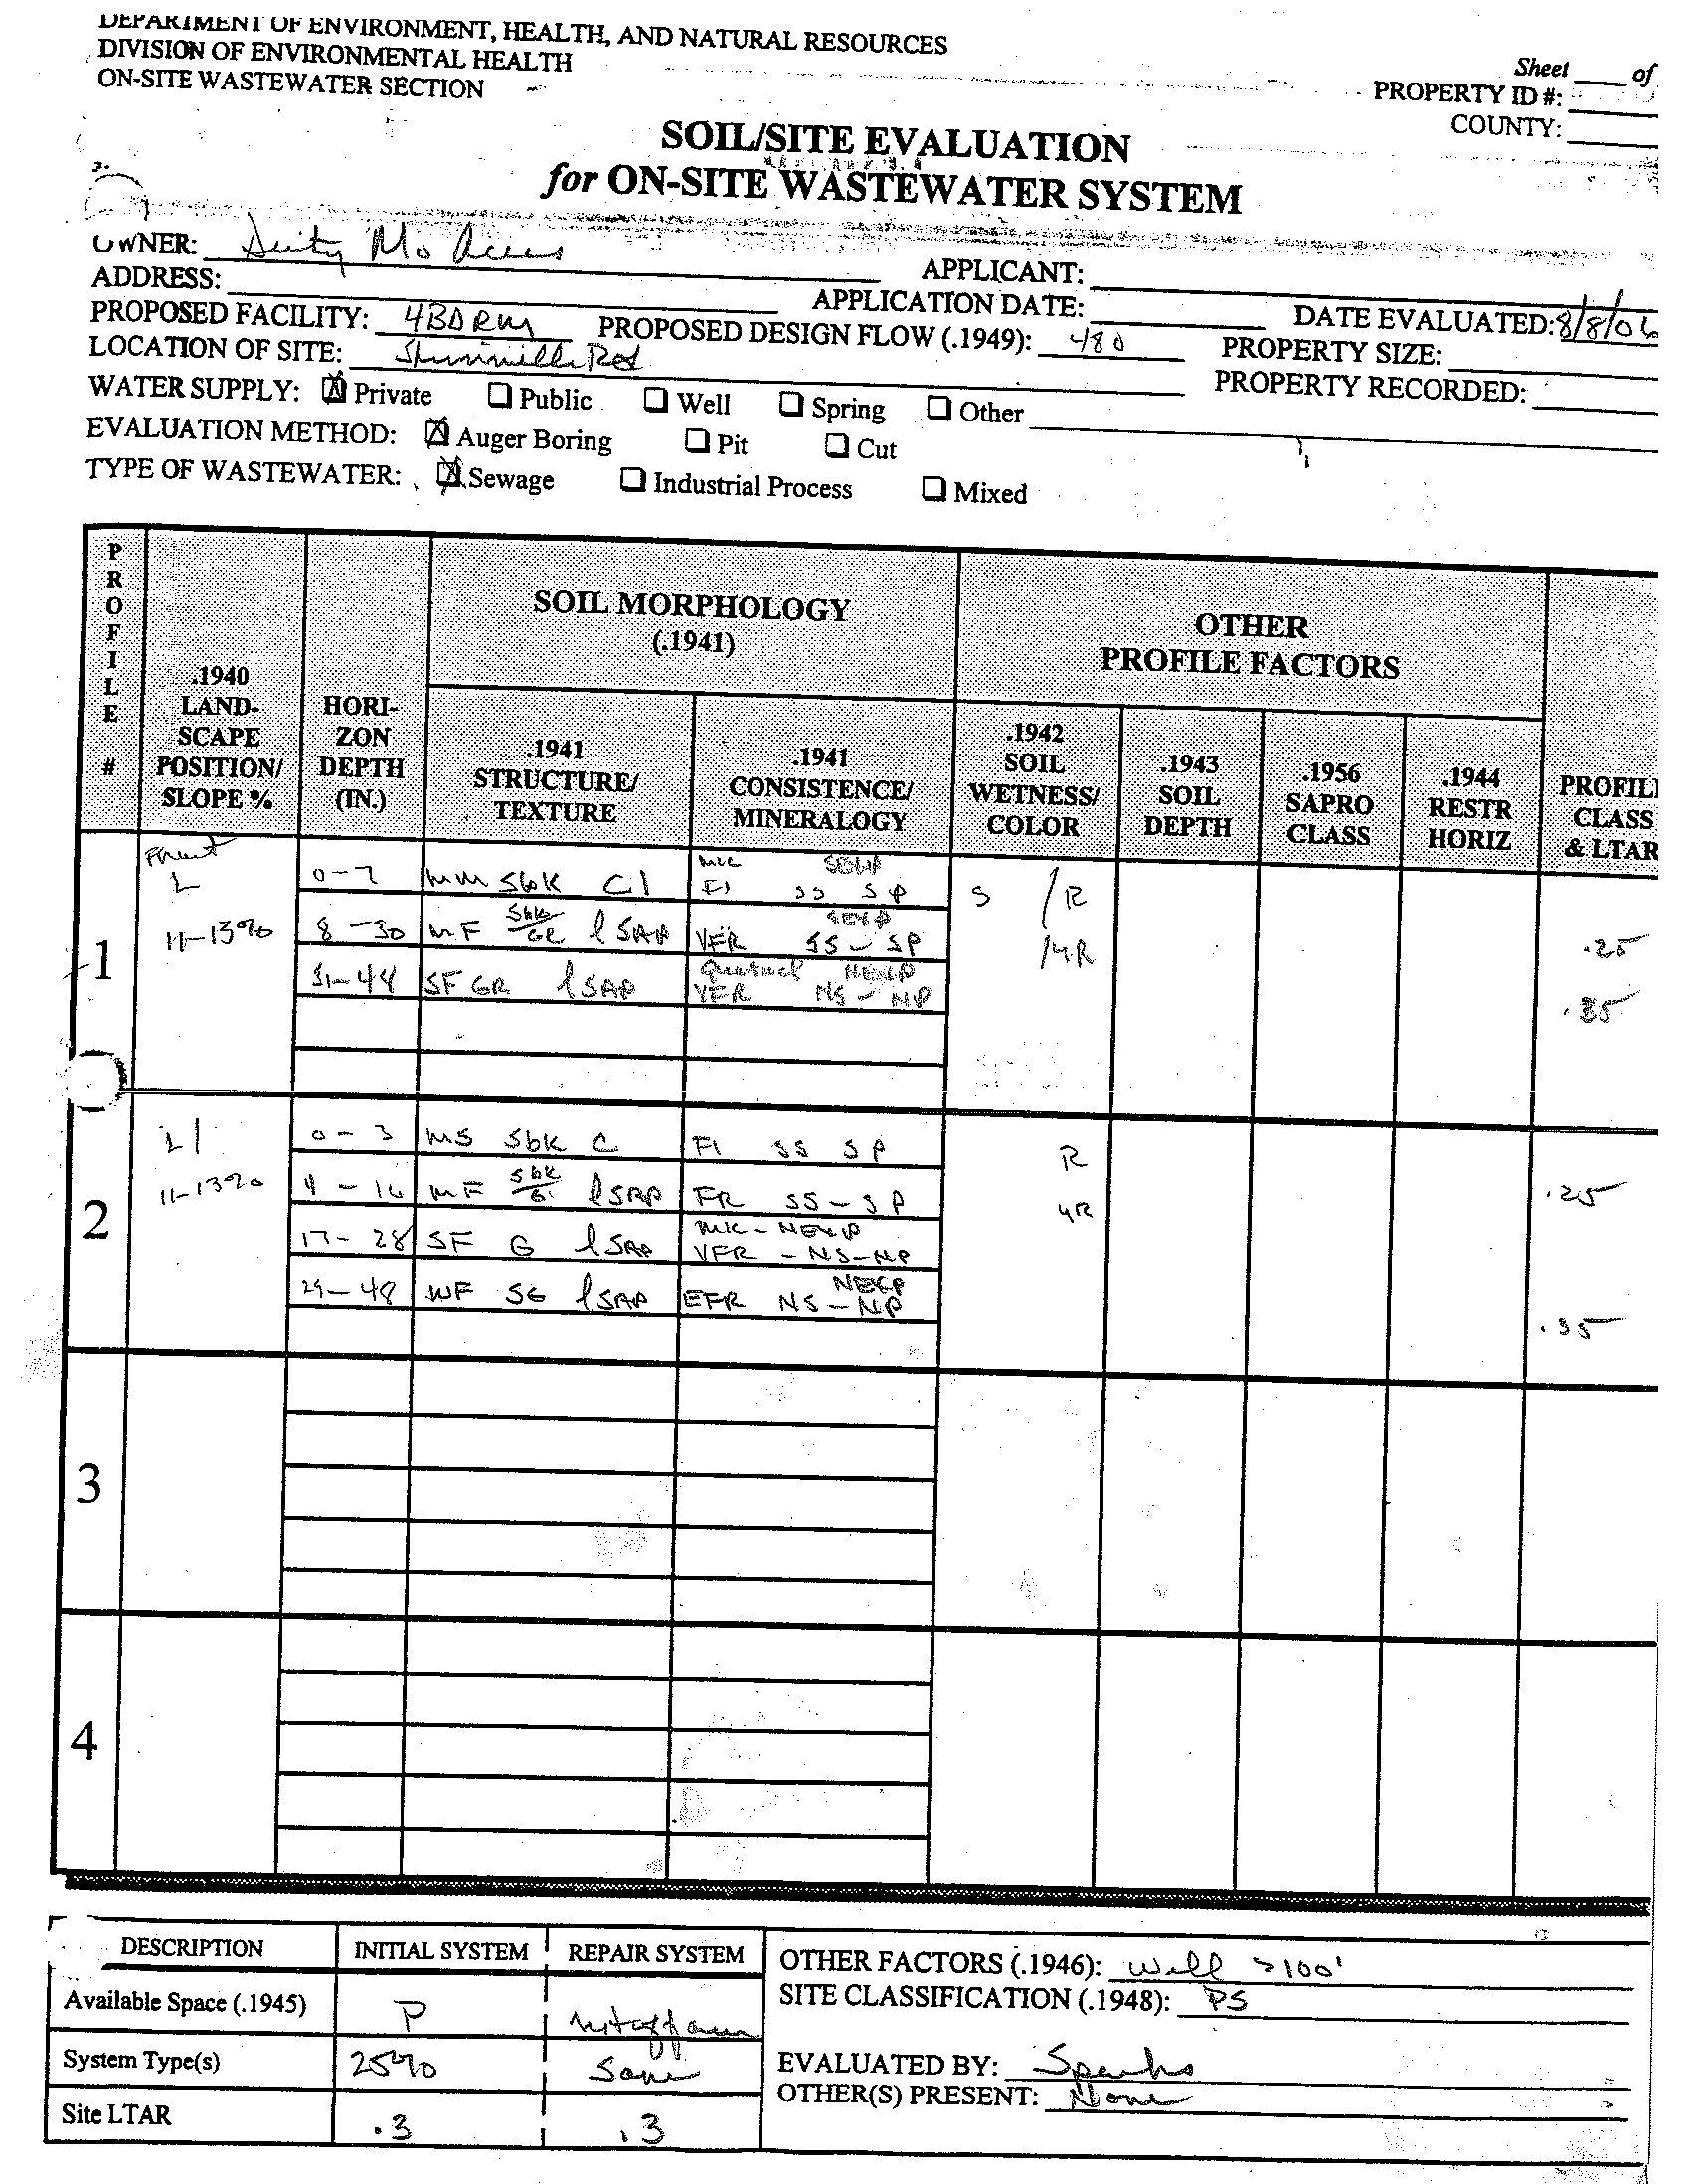 DEPARTMENT OF ENVIRONMENT, HEALTH, AND NATURAL RESOURCES
DIVISION OF ENVIRONMENTAL HEALTH
ON-SITE WASTEWATER SECTION
Sheet ____ of
PROPERTY ID #:
COUNTY:
SOIL/SITE EVALUATION
for ON-SITE WASTEWATER SYSTEM
OWNER:
APPLICANT:
ADDRESS:
APPLICATION DATE:
DATE EVALUATED: 8/8/06
PROPOSED FACILITY: 4BDRM
PROPOSED DESIGN FLOW (.1949): 480
PROPERTY SIZE:
LOCATION OF SITE: Rd
PROPERTY RECORDED:
WATER SUPPLY: ☒ Private ☐ Public ☐ Well ☐ Spring ☐ Other
EVALUATION METHOD: ☒ Auger Boring ☐ Pit ☐ Cut
TYPE OF WASTEWATER: ☒ Sewage ☐ Industrial Process ☐ Mixed
PROFILE #
.1940 LAND-SCAPE POSITION/ SLOPE %
HORI-ZON DEPTH (IN.)
SOIL MORPHOLOGY (.1941)
.1941 STRUCTURE/ TEXTURE
.1941 CONSISTENCE/ MINERALOGY
OTHER PROFILE FACTORS
.1942 SOIL WETNESS/ COLOR
.1943 SOIL DEPTH
.1956 SAPRO CLASS
.1944 RESTR HORIZ
PROFIL CLASS & LTAR
1
L
11-13%
0-7 mm sbk Cl FI SS SP S /R
8-30 MF sbk/GR l SAP VFR SS-SP /YR .25
31-48 SF GR l SAP VFR NS-NP .35
2
L
11-13%
0-3 MS sbk C FI SS SP R
4-16 MF sbk/G l SAP FR SS-SP YR .25
17-28 SF G l SAP NEXP VFR-NS-NP
29-48 WF SG l SAP NEXP EFR NS-NP
.35
3
4
DESCRIPTION INITIAL SYSTEM REPAIR SYSTEM
Available Space (.1945) P
System Type(s) 25% Same
Site LTAR .3 .3
OTHER FACTORS (.1946): well >100'
SITE CLASSIFICATION (.1948): PS
EVALUATED BY: Sparks
OTHER(S) PRESENT: None